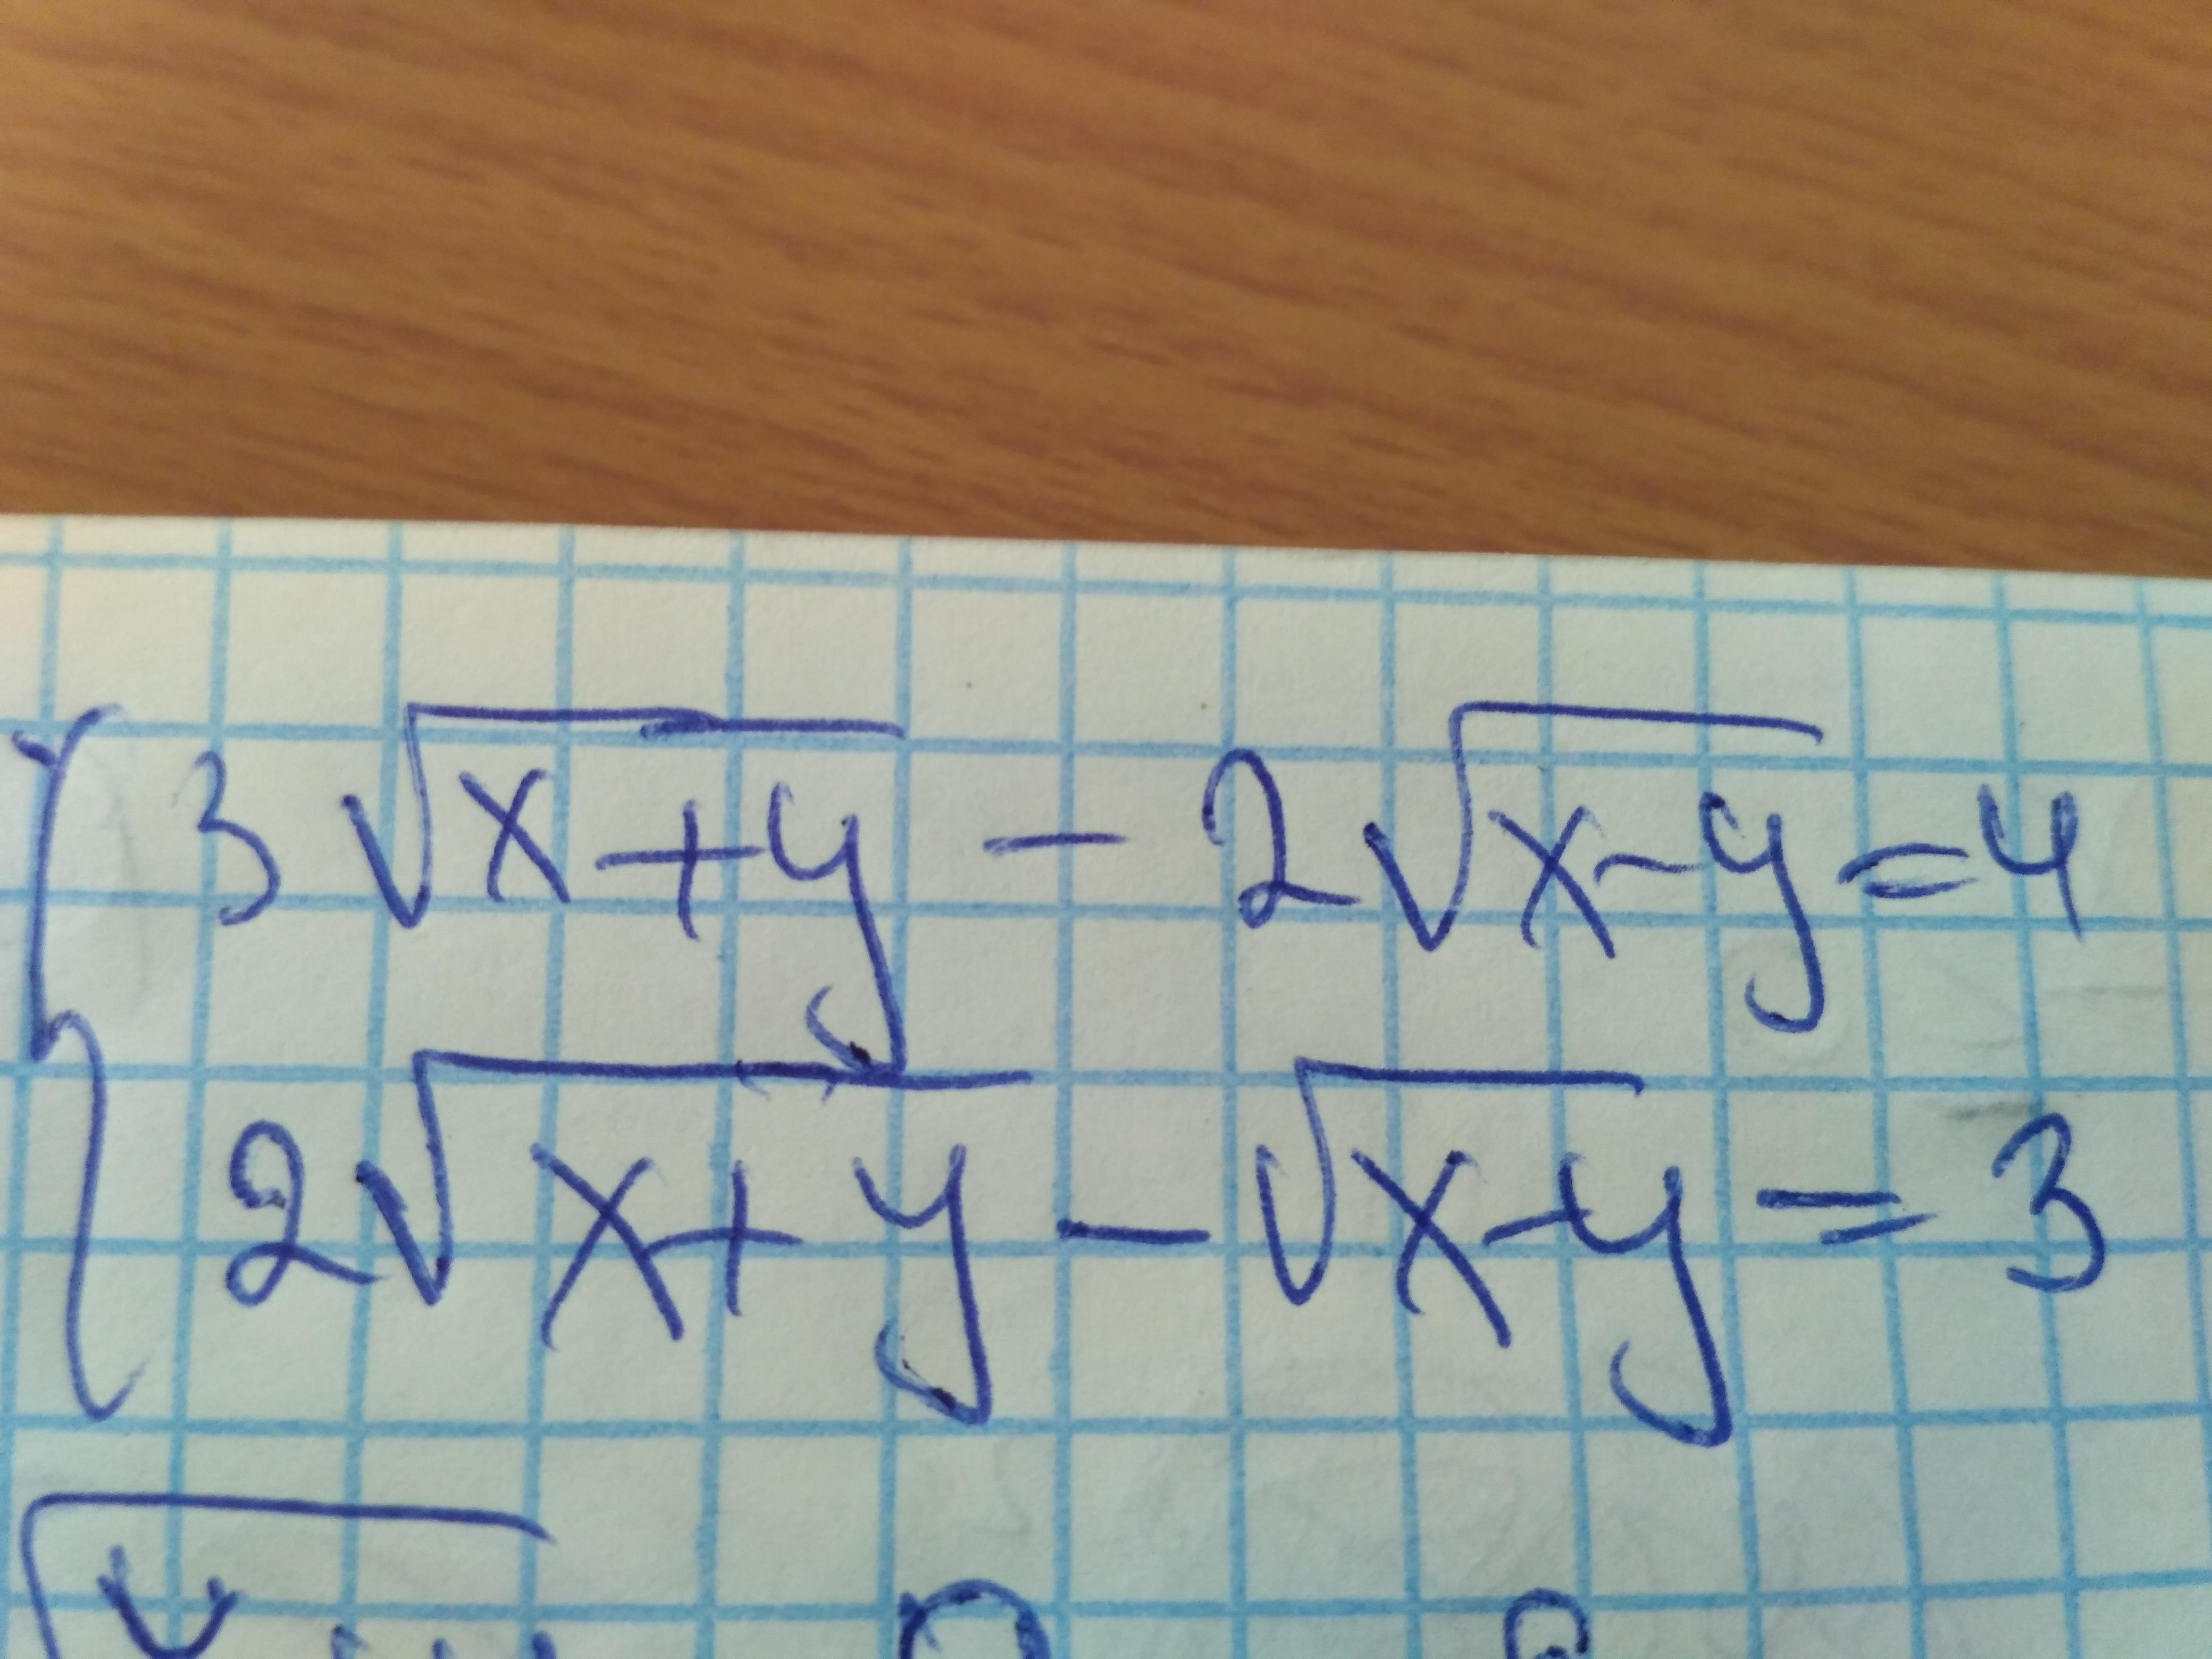 3√x+y - 2√x-y = 4
2√x+y - √x-y = 3